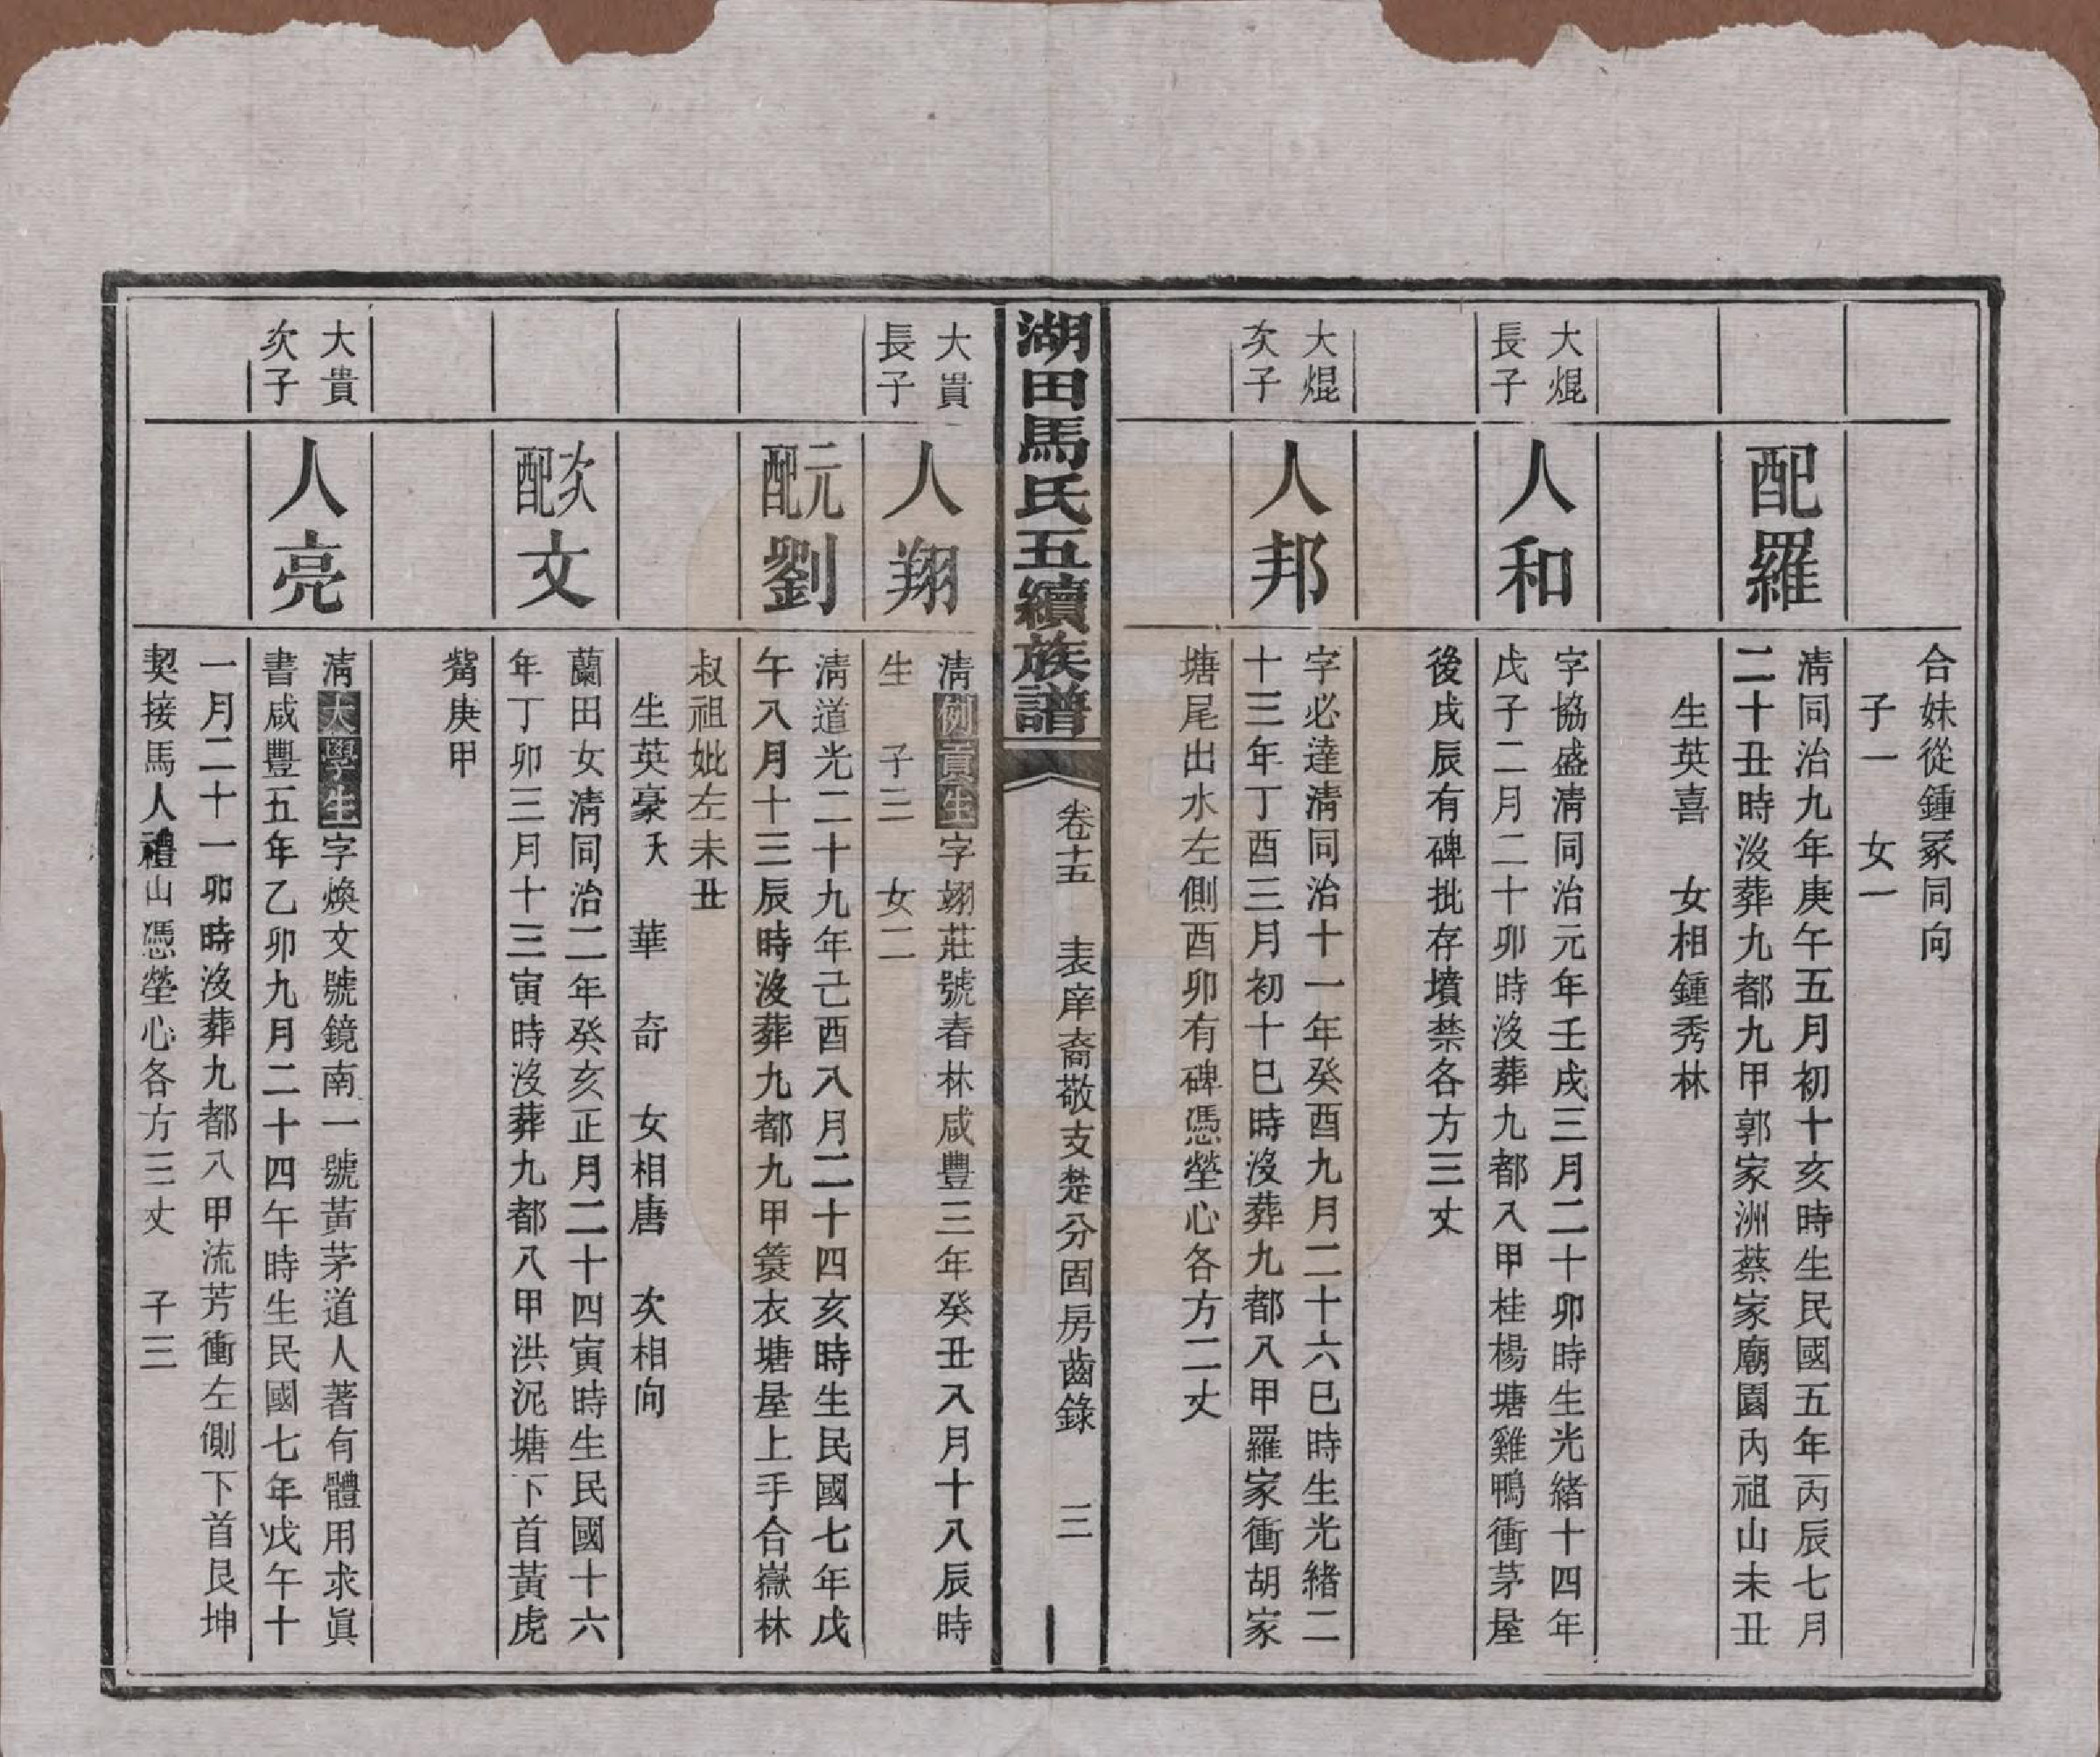 合妹從鍾冢同向
子一　女一
配羅
清同治九年庚午五月初十亥時生民國五年丙辰七月
二十丑時沒葬九都九甲郭家洲蔡家廟園內祖山未丑
生英喜　女相鍾秀林
大焜
長子
人和
字協盛清同治元年壬戌三月二十卯時生光緒十四年
戊子二月二十卯時沒葬九都八甲桂楊塘雞鴨衝茅屋
後戌辰有碑批存墳禁各方三丈
大焜
次子
人邦
字必達清同治十一年癸酉九月二十六巳時生光緒二
十三年丁酉三月初十巳時沒葬九都八甲羅家衝胡家
塘尾出水左側酉卯有碑憑塋心各方二丈
湖田馬氏五續族譜
卷十五　表庠裔敬支楚分固房齒錄　三
大貴
長子
人翔
清例貢生字翊莊號春林咸豐三年癸丑八月十八辰時
生　子三　女二
元配劉
清道光二十九年己酉八月二十四亥時生民國七年戊
午八月十三辰時沒葬九都九甲簑衣塘屋上手合嶽林
叔祖妣左未丑
生英豪夭　華　奇　女相唐　次相向
次配文
蘭田女清同治二年癸亥正月二十四寅時生民國十六
年丁卯三月十三寅時沒葬九都八甲洪泥塘下首黃虎
觜庚甲
大貴
次子
人亮
清大學生字煥文號鏡南一號黃茅道人著有體用求眞
書咸豐五年乙卯九月二十四午時生民國七年戊午十
一月二十一卯時沒葬九都八甲流芳衝左側下首艮坤
契接馬人禮山憑塋心各方三丈　子三